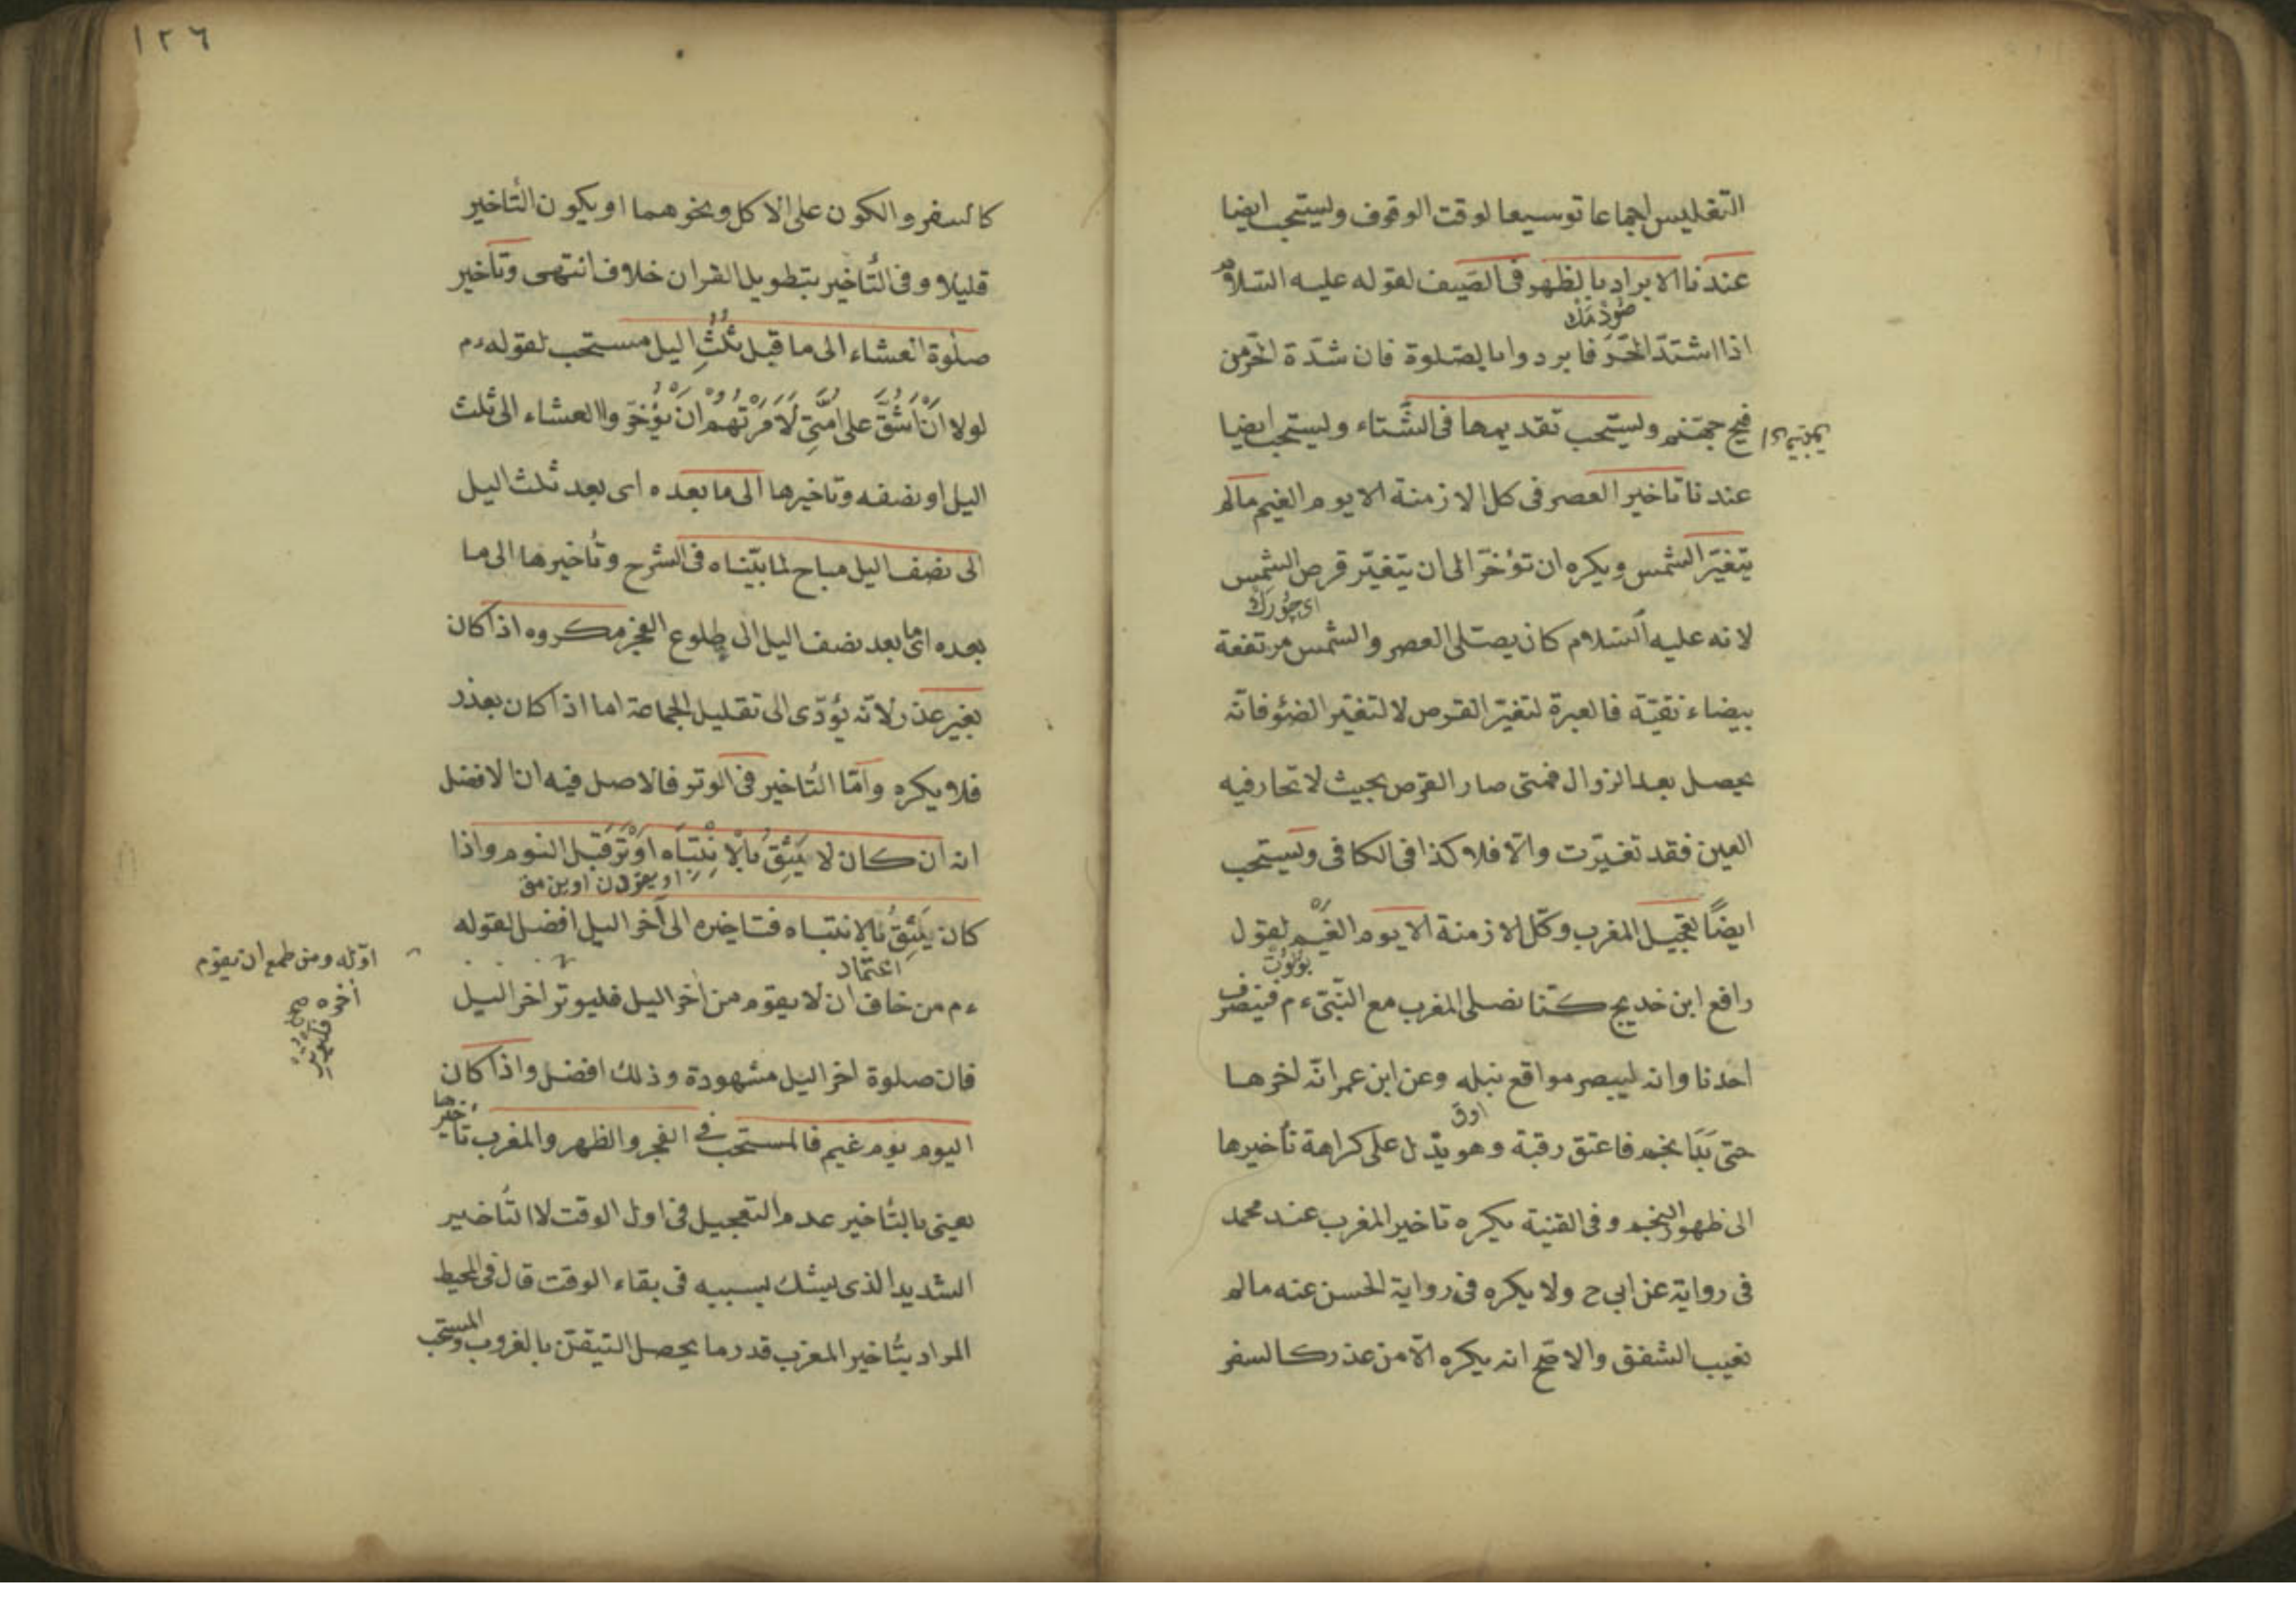 التغليس اجماعا توسيعا لوقت الوقوف ويستحب ايضا
عندنا الابراد بالظهر فى الصيف لقوله عليه السلام
اذا اشتدّ الحَرّ فابردوا بالصلوة فان شدّة الحرّ من
فيح جهنم ويستحب تقديمها فى الشّتاء ويستحب ايضا
عندنا تاخير العصر فى كل الازمنة الا يوم الغيم مالم
يتغيّر الشمس ويكره ان تؤخّر الى ان يتغيّر قرص الشمس
لانه عليه السّلام كان يصلى العصر والشمس مرتفعة
بيضاء نقيّة فالعبرة لتغيّر القرص لا لتغيّر الضوء فانّه
يحصل بعد الزوال فمتى صار القرص بحيث لا تحار فيه
العين فقد تغيّرت والّا فلا كذا فى الكافى ويستحب
ايضًا تعجيل المغرب وكل الازمنة الا يوم الغَيْم لقول
رافع ابن خديج كنّا نصلى المغرب مع النّبىّ ءم فينصرف
احدنا وانه ليبصر مواقع نبله وعن ابن عمر انّه اخرها
حتى بَدَا نجم فاعتق رقبة وهو يدّل على كراهة تأخيرها
الى ظهور النجم وفى القنية يكره تاخير المغرب عند محمد
فى رواية عن ابى ح ولا يكره فى رواية الحسن عنه مالم
يغيب الشفق والاصح انه يكره الّا من عذر كالسفر
١٢٦
كالسفر والكون على الاكل ونحوهما او يكون التّأخير
قليلا وفى التّأخير بتطويل القران خلاف انتهى وتأخير
صلوة العشاء الى ما قبل ثُلُثِ اليل مستحب لقوله ءم
لولا اَنْ اَشُقَّ على اُمَّتِى لَاَمَرْتُهُمْ اَنْ يُؤَخِّرُوا العشاء الى ثلث
اليل او نصفه وتاخيرها الى ما بعده اى بعد ثلث اليل
الى نصف اليل مباح لما بيّنّاه فى الشرح وتأخيرها الى ما
بعده اى ما بعد نصف اليل الى طلوع الفجر مكروه اذا كان
بغير عذر لانّه يؤدّى الى تقليل الجماعة اما اذا كان بعذر
فلا يكره وامّا التّأخير فى الوتر فالاصل فيه ان الافضل
انه ان كان لا يَثِقُ بالْاِنْتِبَاه اَوْتَرَ قبل النوم واذا
كان يَثِقُ بالانتباه فتاخيره الى آخر اليل افضل لقوله
ءم من خاف ان لا يقوم من اخر اليل فليوتر اخر اليل
اوّله ومن طمع ان يقوم
أخره فليوتر
فان صلوة اخر اليل مشهودة وذلك افضل واذا كان
اليوم يوم غيم فالمستحب فى الفجر والظهر والمغرب تأخيرها
يعنى بالتّأخير عدم التعجيل فى اول الوقت لا التّأخير
الشديد الذى يشك بسببه فى بقاء الوقت قال فى المحيط
المراد بتّأخير المغرب قدر ما يحصل التيقّن بالغروب والمستحب